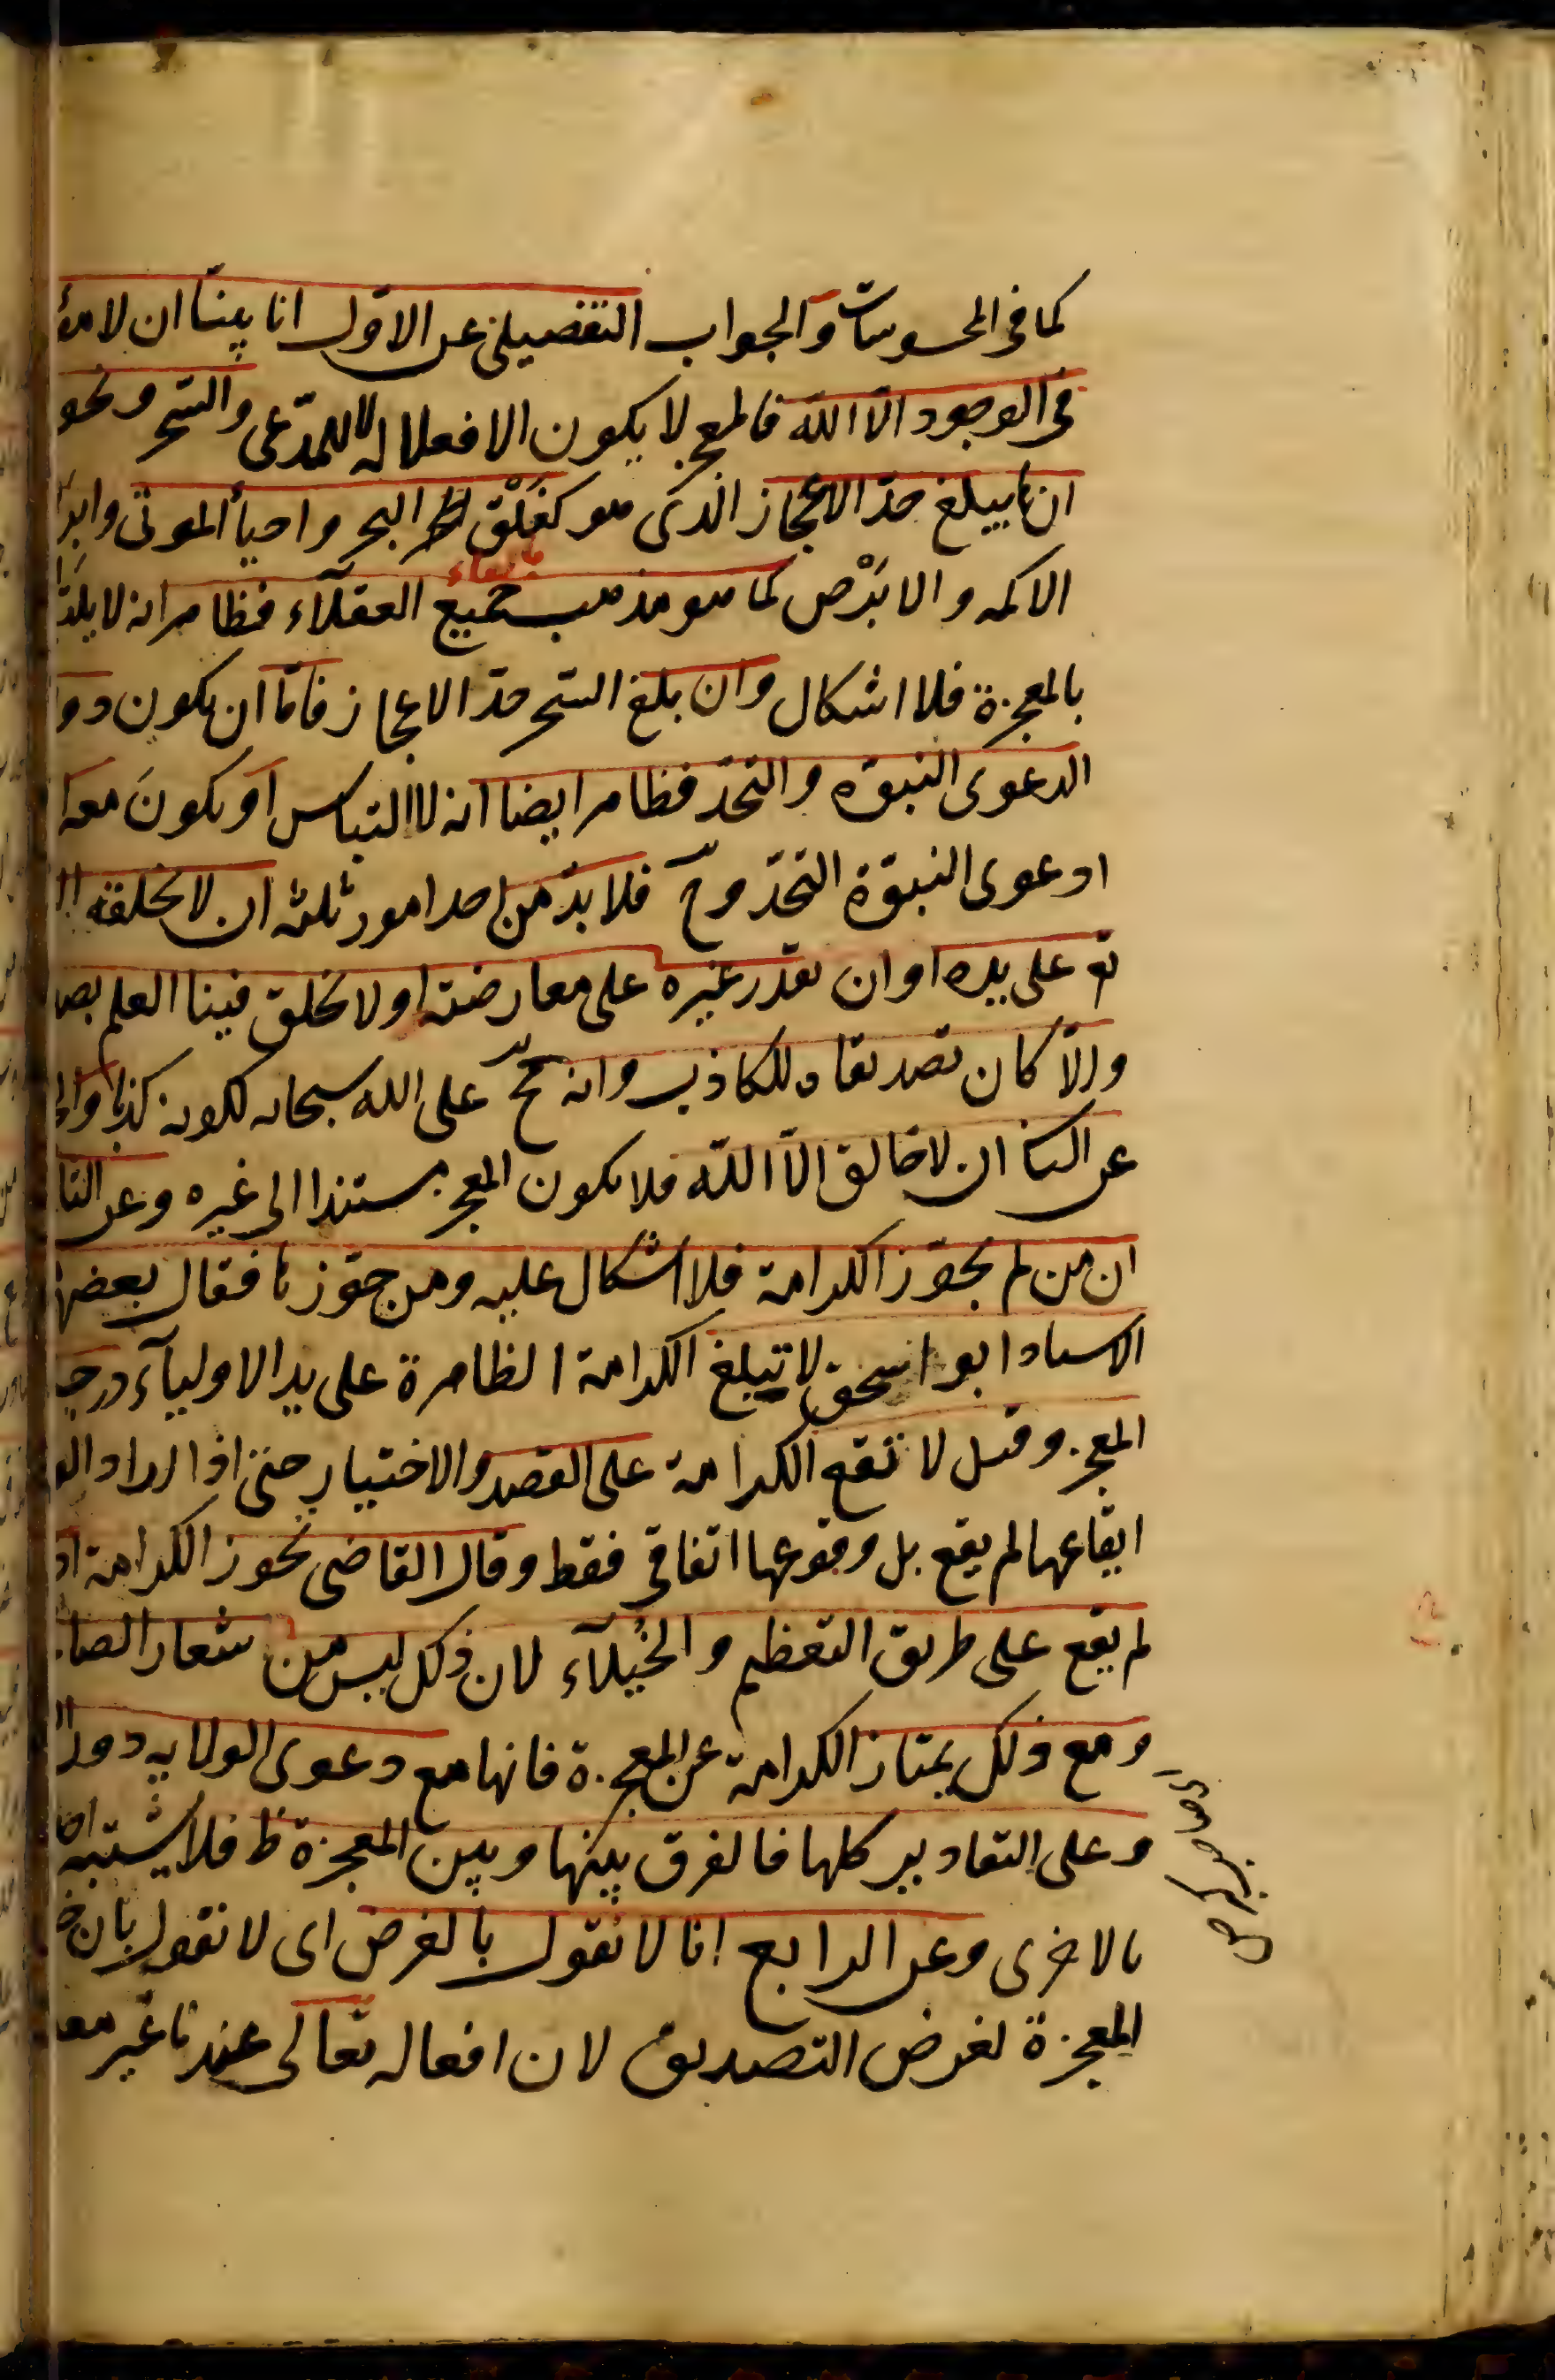 كما فى المحسوسات والجواب التفصيلى عن الاوّل انا بينّا ان لا مؤ
فى الوجود الّا اللّه فالمعجز لا يكون الا فعلا له لا للمدّعى والسّحر ونحو
ان يبلغ حدّ الاعجاز الذى هو كفَلْق البحر واحياء الموتى وابر
الاكمه والابْرص كما هو مذهب جميع العقلآء فظاهر انه لا يلت
بالمعجزة فلا اشكال وان بلغ السّحر حدّ الاعجاز فامّا ان يكون دو
الدعوى النبوّة والتحدّ فظاهر ايضا انه لا التباس او يكونَ معه ا
ادعوى النبوّة التحدّ وح فلا بدّ من احد امور ثلثه ان لا يخلقه ال
تع على يده او ان يقدر غيره على معارضته او لا يخلق فينا العلم بصد
والّا كان تصديقا للكاذب وانه مح على الله سبحانه لكونه كذبا والج
عن الثا ان لا خالق الّا اللّه فلا يكون المعجز مستندا الى غيره وعن الثا
ان من لم يجوّز الكرامة فلا اشكال عليه ومن جوّزها فقال بعضهم
الاستاد ابو اسحق لا تبلغ الكرامة الظاهرة على يد الاوليآء درجـ
المعجز وقيل لا تقع الكرامة على القصد والاختيار حتى اذا اراد الو
ايقاعها لم يقع بل وقوعها اتفاقى فقط وقال القاضى يجوز الكرامة اذ
لم يقع على طريق التعظم والخُيلآء لان ذلك ليس من شعار الصا
ومع ذلك يمتاز الكرامة عن المعجزة فانها مع دعوى الولايه دون ال
وعلى التقادير كلها فالفرق بينها وبين المعجزة ظ فلا يشتبه احد
بالاخرى وعن الرابع انا لا نقول بالغرض اى لا نقول بان خ
المعجزة لغرض التصديق لان افعاله تعالى عندنا غير معـ